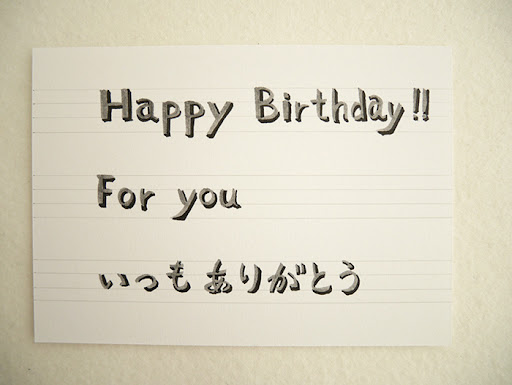 Happy Birthday!!
For you
いつもありがとう